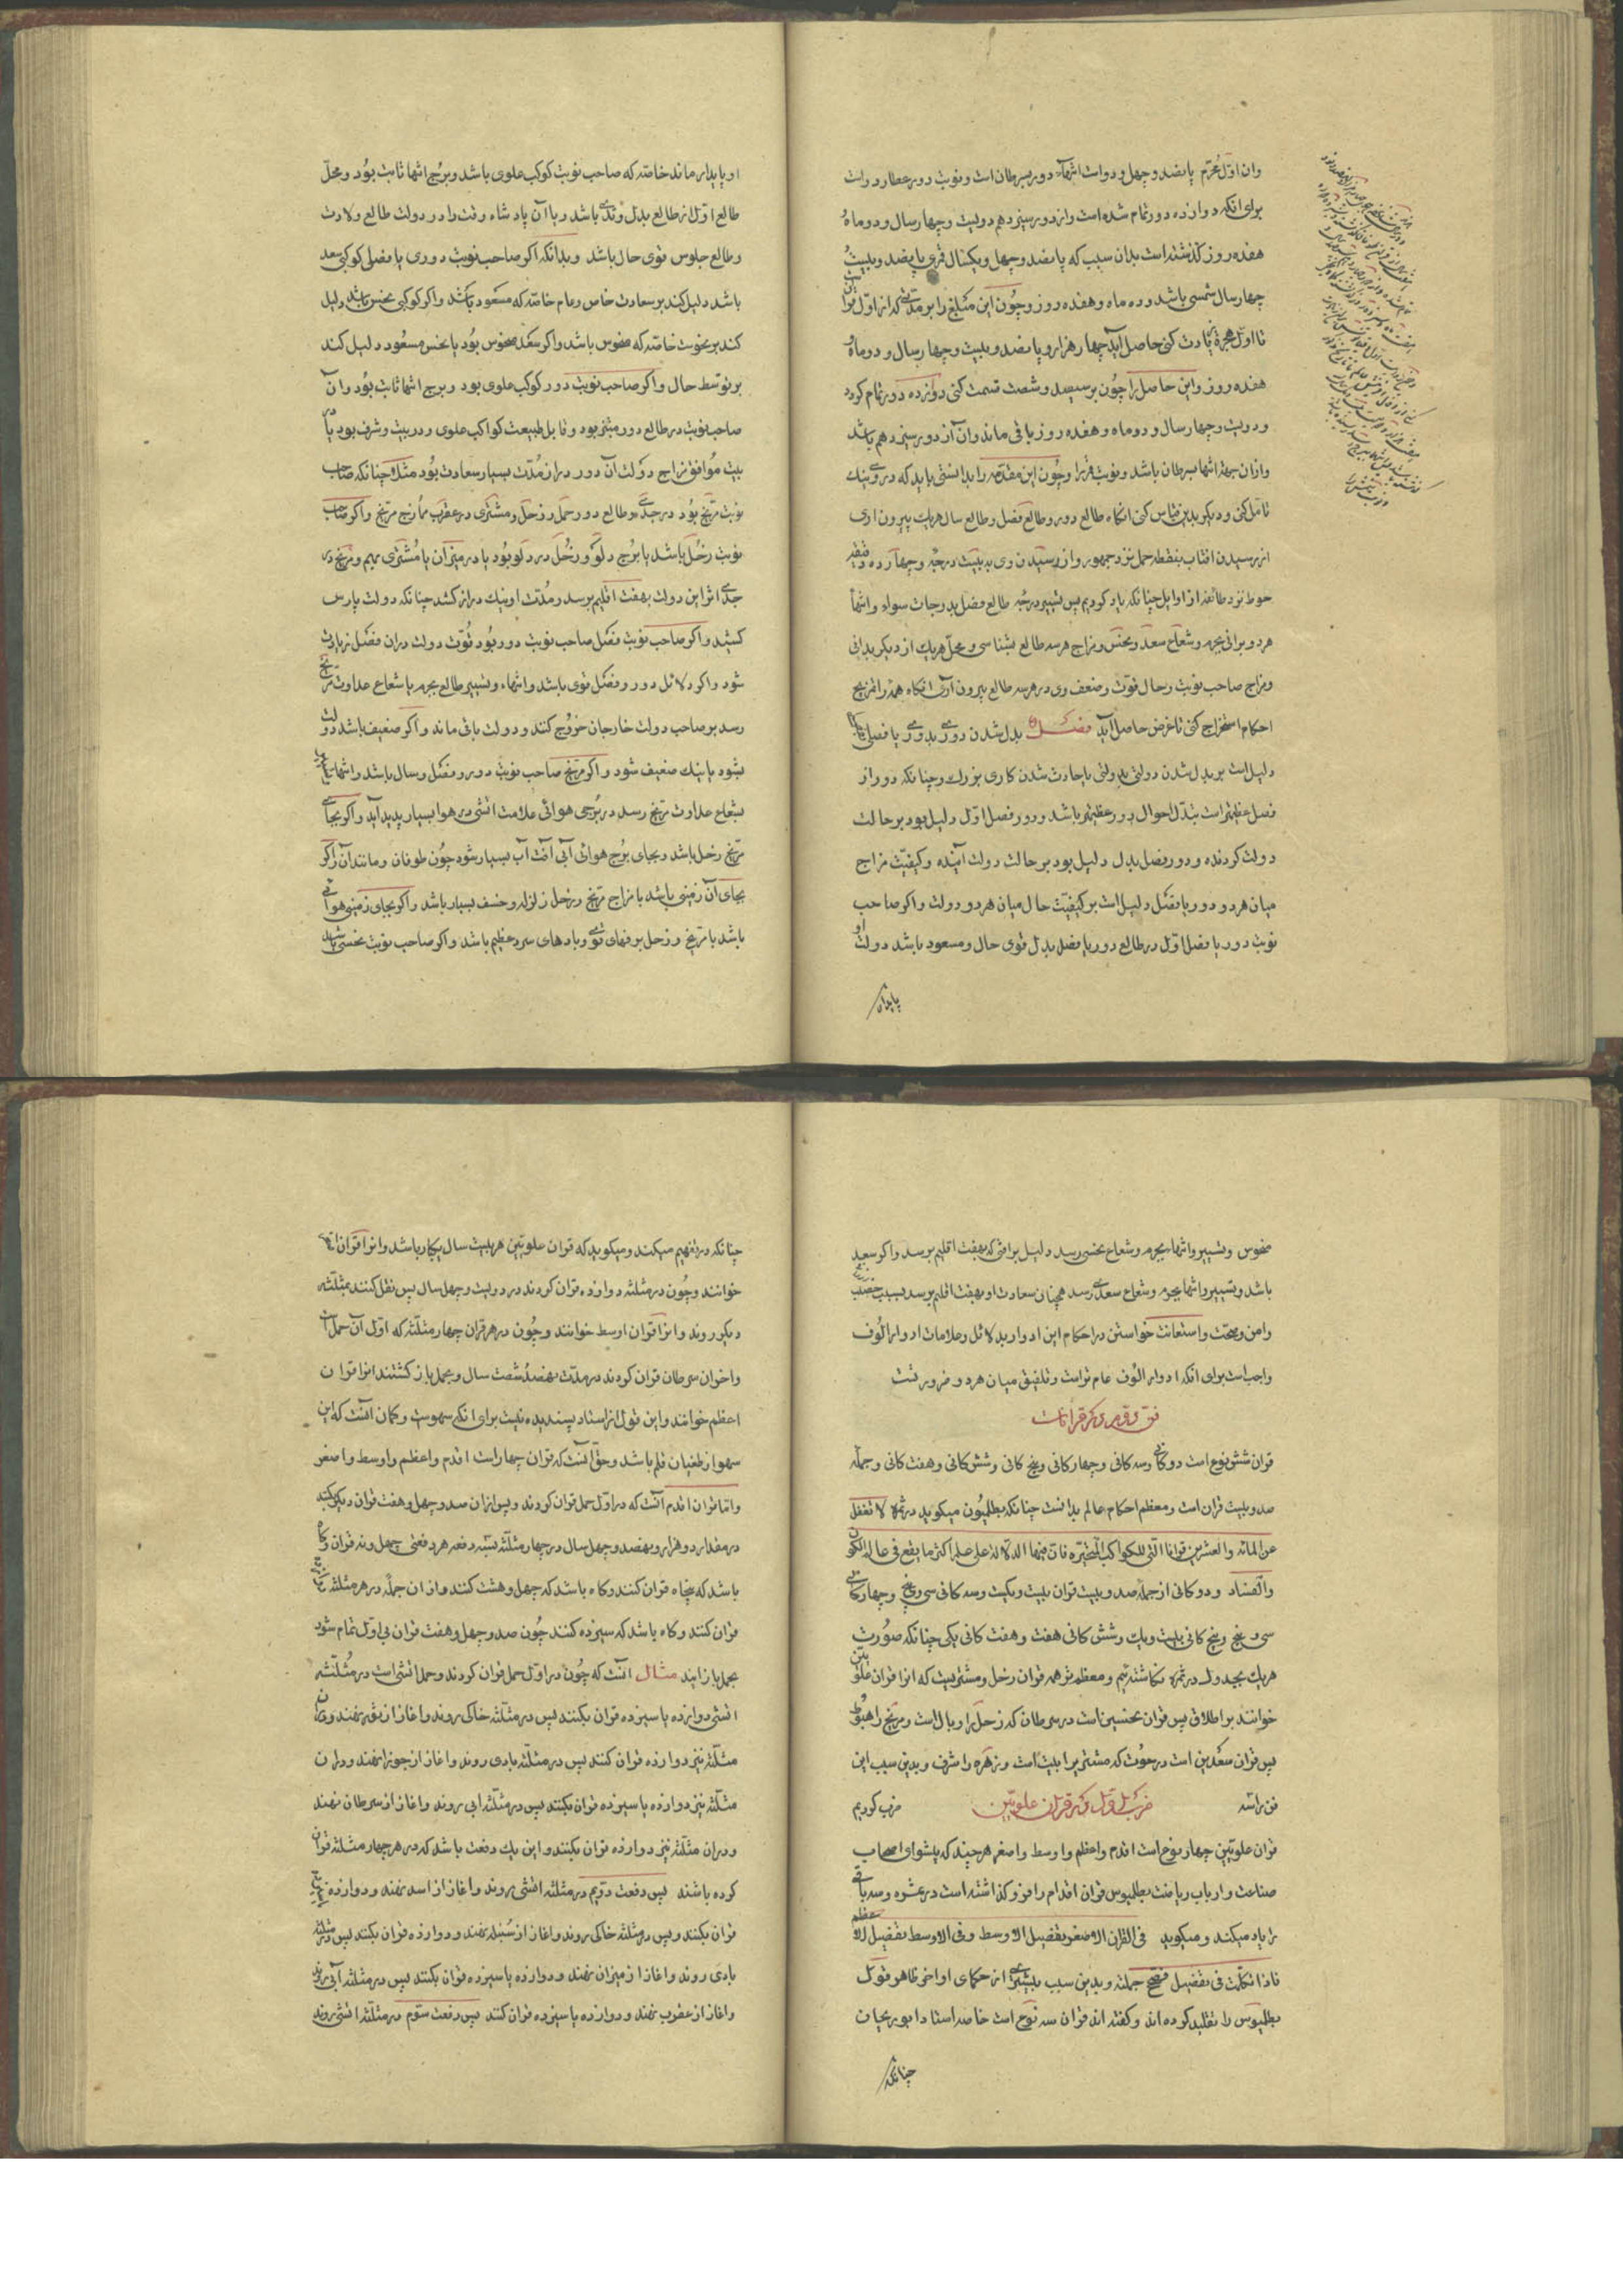 وان اوّل محرّم پانصد و چهل و دو است انتهاء دور بسرطان است و نوبت دور عطارد راست
برای انکه دوازده دور تمام شده است و از دور سیزدهم دویست و چهار سال و دو ماه و
هفده روز کذشته است بدان سبب که پانصد و چهل و یکسال قمری پانصد و بیست و
چهار سال شمسی باشد و ده ماه و هفده روز و چون این مبلغ را بر مدّتی که از اوّل قران
تا اوّل هجرة زیادت کنی حاصل آید چهار هزار و پانصد و بیست و چهار سال و دو ماه و
هفده روز و این حاصل را چون بر سیصد و شصت قسمت کنی دوازده دور تمام کردد
و دویست و چهار سال و دو ماه و هفده روز باقی ماند و ان از دور سیزدهم باشد
و ازان جهة انتها بسرطان باشد و نوبت قمر را و چون این مقدّمه را بدانستی باید که در وی نیک
تامّل کنی و دیکر بدین قیاس کنی انکاه طالع دور و طالع فصل و طالع سال هریک بیرون اری
از رسیدن افتاب بنقطه حمل نزد جمهور و از رسیدن وی به بیست درجه و چهارده دقیقه
حوط نزد طائفه از اوایل چنانکه یاد کردیم پس تسییر درجه طالع فصل بدرجات سواء و انتها
هر دو برانی بجرم و شعاع سعد و نحس و مزاج هر سه طالع بشناسی و محل هریک از دیکر بدانی
و مزاج صاحب نوبت و حال قوّت و ضعف وی در هر سه طالع بیرون آری انکاه همه را تمزیج
احکام استخراج کنی تا غرض حاصل آید فصل بدل شدن دوری بدوری یا فصلی
دلیل است بر بدل شدن دولتی بدولتی یا حادث شدن کاری بزرک و چنانکه دور از
فصل عظیم‌تر است تبدّل احوال دور عظیم‌تر باشد و دور فصل اوّل دلیل بود بر حالت
دولت کردنده و دور فصل بدل دلیل بود بر حالت دولت آینده و کیفیّت مزاج
میان هر دو دور یا فصل دلیل است بر کیفیّت حال میان هر دو دولت و اکر صاحب
نوبت دور یا فصل اوّل در طالع دور یا فصل بدل قوی حال و مسعود باشد دولت او
پایدار
او پایدار ماند خاصّه که صاحب نوبت کوکب علوی باشد و برج انتها ثابت بود و محلّ
طالع اوّل از طالع بدل وتدی باشد و با آن پادشاه وقت را در دولت طالع ولادت
و طالع جلوس قوی حال باشد و بدانکه اکر صاحب نوبت دوری یا فصلی کوکبی سعد
باشد دلیل کند بر سعادت خاص و عام خاصّه که مسعود باشد و اکر کوکبی نحس باشد دلیل
کند بر نحوست خاصّه که منحوس باشد و اکر سعد منحوس بود یا نحس مسعود دلیل کند
بر توسّط حال و اکر صاحب نوبت دور کوکب علوی بود و برج انتها ثابت بود و آن
صاحب نوبت در طالع دور مبتز بود و قابل طبیعت کواکب علوی و در بیت و شرف بود یا در
بیت موافق مزاج دولت آن دور دراز مدّت بسیار سعادت بود مثلا چنانکه صاحب
نوبت مرّیخ بود در جدی و طالع دور حمل و زحل و مشتری در عقرب ممازج مرّیخ و اکر صاحب
نوبت زحل باشد یا برج دلو و زحل در دلو بود یا در میزان با مشتری بهم و مرّیخ در
جدی اثر این دولت بهفت اقلیم برسد و مدّت او نیک دراز کشد چنانکه دولت پارس
کشید و اکر صاحب نوبت فصل صاحب نوبت دور بود قوّت دولت دران فصل زیادت
شود و اکر دلائل دور و فصل قوی باشد و انتهاء و تسییر طالع بجرم یا شعاع عداوت مرّیخ
رسد بر صاحب دولت خارجان خروج کنند و دولت باقی ماند و اکر ضعیف باشد دولت
بشود یا نیک ضعیف شود و اکر مرّیخ صاحب نوبت دور و فصل و سال باشد و انتها
بشعاع عداوت مرّیخ رسد در برجی هوائی علامت اتشی در هوا بسیار پدید آید و اکر بجای
مرّیخ زحل باشد و بجای برج هوائی آبی آفت آب بسیار شود چون طوفان و مانند آن و اکر
بجای آن زمینی باشد با مزاج مرّیخ و زحل زلزله و خسف بسیار باشد و اکر بجای زمینی هوائی
باشد با مرّیخ و زحل برفهای قوی و بادهای سرد عظیم باشد و اکر صاحب نوبت نحسی باشد
منحوس و تسییر و انتها بجرم و شعاع نحسی رسد دلیل بر افتی که بهفت اقلیم برسد و اکر سعید
باشد و تسییر و انتها بجرم و شعاع سعدی رسد همچنان سعادت او بهفت اقلیم برسد بسبب خصب
و امن و صحّت و استعانت خواستن در احکام این ادوار بدلائل و علامات ادوار الوف
واجب است برای انکه ادوار الوف عام تر است و تلفیق میان هر دو ضرورتست
فنّ دوم در ذکر قرانات
قران شش نوع است دوکانی و سه کانی و چهارکانی و پنج کانی و شش کانی و هفت کانی و جمله
صد و بیست قران است و معظم احکام عالم بدانست چنانکه بطلمیون میکوید در ثمره لا تغفل
عن المائه و العشرین قرانا التی للکواکب المتحیّره فان فیها الدلالة علی علم اکثر ما یقع فی عالم الکون
و الفساد و دوکانی از جمله صد و بیست قران بیست و یکست و سه کانی سی و پنج و چهارکانی
سی و پنج و پنج کانی بیست و یک و شش کانی هفت و هفت کانی یکی چنانکه صورت
هریک بجدول در ثمره نکاشته‌ایم و معظم‌تر همه قران زحل و مشتریست که انرا قران علویّین
خوانند بر اطلاق پس قران نحسین است در سرطان که زحل را وبال است و مرّیخ را هبوط
پس قران سعدین است در حوت که مشتری را بیت است و زهره را شرف و بدین سبب این
فن را سه ضرب اوّل در ذکر قران علویّین ضرب کردیم
قران علویّین چهار نوع است اقدم و اعظم و اوسط و اصغر هرچند که پیشوای اصحاب
صناعت و ارباب ریاضت بطلمیوس قران اقدم را فرو کذاشته است در عشره و سه باقی
را یاد میکند و میکوید فی القران الاصغر تفصیل الاوسط و فی الاوسط تفصیل الاعظم
فاذا تکلّمت فی تفصیل فصحّح جملته و بدین سبب بیشتری از حکمای اواخر ظاهر قول
بطلمیوس را تقلید کرده اند و کفته اند قران سه نوع است خاصه استاد ابو ریحان
چنانکه
چنانکه در تفهیم میکند و میکوید که قران علویّین هر بیست سال یکبار باشد و انرا قران اصغر
خوانند و چون در مثلثه دوازده قران کردند در دویست و چهل سال پس نقل کنند بمثلّثه
دیکر روند و انرا قران اوسط خوانند و چون در هر قران چهار مثلّثه که اوّل آن حمل است
و اخر ان سرطان قران کردند در مدّت نهصد شصت سال و بحمل باز کشتند انرا قران
اعظم خوانند و این قول از استاد پسندیده نیست برای انکه سهوست و کمان آنست که این
سهو از طغیان قلم باشد و حق آنست که قران چهار است اقدم و اعظم و اوسط و اصغر
و امّا قران اقدم آنست که در اوّل حمل قران کردند و پس ازان صد و چهل و هفت قران دیکر بکنند
در مقدار دو هزار و نهصد و چهل سال در چهار مثلّثه بسه دفعه هر دفعتی چهل و نه قران و کاه
باشد که پنجاه قران کنند و کاه باشد که چهل و هشت کنند و از ان جمله در هر مثلّثه
قران کنند و کاه باشد که سیزده کنند چون صد و چهل و هفت قران بی اوّل تمام شود
بحمل باز ایند مثال آنست که چون در اوّل حمل قران کردند و حمل اتشی است در مثلّثه
اتشی دوازده یا سیزده قران بکنند پس در مثلّثه خاکی روند و اغاز از ثور نهند و دران
مثلّثه نیز دوازده قران کنند پس در مثلّثه بادی روند و اغاز از جوزا نهند و دران
مثلّثه نیز دوازده یا سیزده قران بکنند پس در مثلّثه ابی روند و اغاز از سرطان نهند
و دران مثلّثه نیز دوازده قران بکنند و این یک دفعت باشد که در هر چهار مثلّثه قران
کرده باشند پس دفعت دویم در مثلّثه اتشی روند و اغاز از اسد نهند و دوازده
قران بکنند و پس در مثلّثه خاکی روند و اغاز از سنبله نهند و دوازده قران بکنند پس در مثلّثه
بادی روند و اغاز از میزان نهند و دوازده یا سیزده قران بکنند پس در مثلّثه آبی روند
و اغاز از عقرب نهند و دوازده یا سیزده قران کنند پس دفعت سوّم در مثلّثه اتشی روند